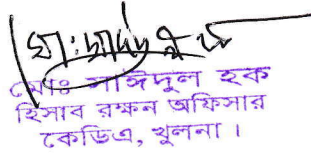 মোঃ সাঈদুল হক
হিসাব রক্ষন অফিসার
কেডিএ, খুলনা।